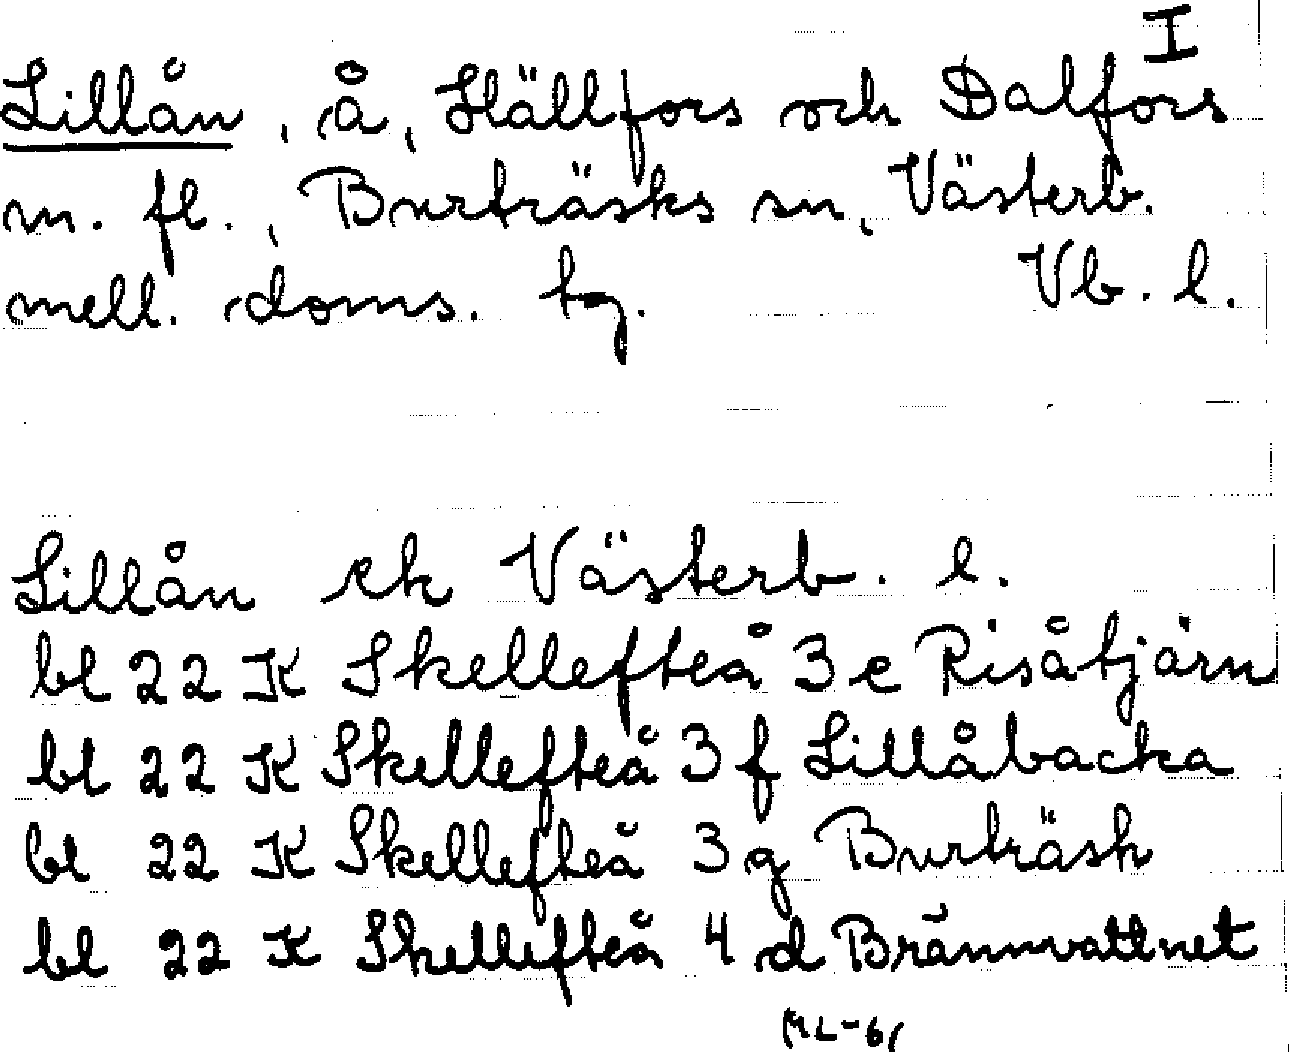 I
Lillån, å, Hällfors och Dalfors
m. fl., Burträsks sn, Västerb.
mell. doms. tg. Vb. l.
Lillån ek Västerb. l.
bl 22 K Skellefteå 3 e Risåtjärn
bl 22 K Skellefteå 3 f Lillåbacka
bl 22 K Skellefteå 3 g Burträsk
bl 22 K Skellefteå 4 d Brännvattnet